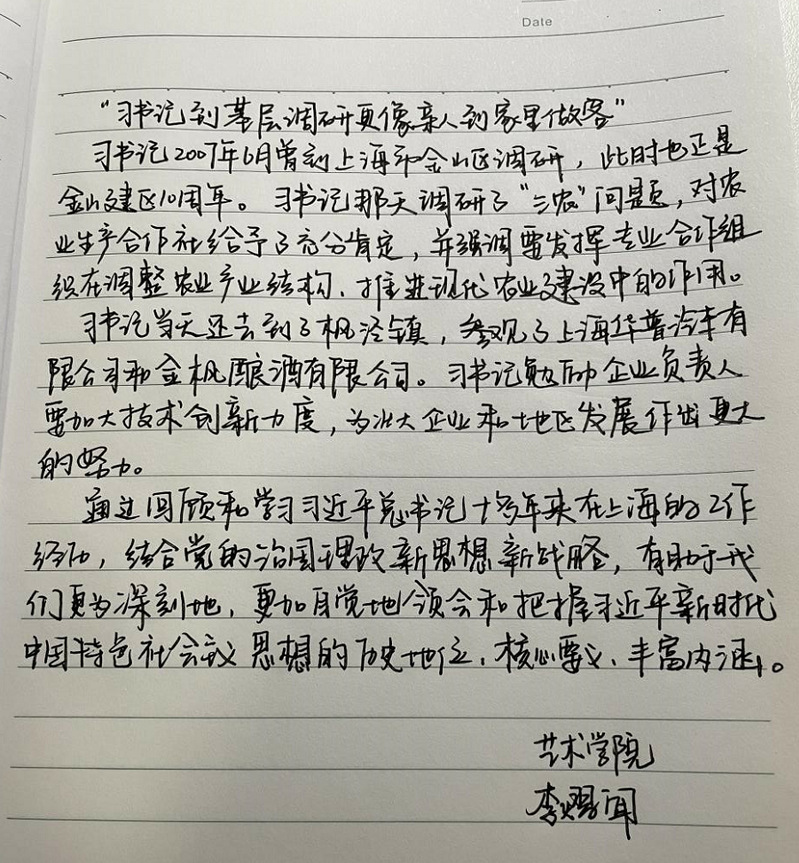 Date
“习书记到基层调研更像亲人到家里做客”
习书记2007年6月曾到上海市金山区调研，此时也正是
金山建区10周年。习书记那天调研了“三农”问题，对农
业生产合作社给予了充分肯定，并强调要发挥专业合作组
织在调整农业产业结构、推进现代农业建设中的作用。
习书记当天还去到了枫泾镇，参观了上海华普汽车有
限公司和金枫酿酒有限公司。习书记勉励企业负责人
要加大技术创新力度，为壮大企业和地区发展作出更大
的努力。
通过回顾和学习习近平总书记十多年来在上海的工作
经历，结合党的治国理政新思想新战略，有助于我
们更为深刻地，更加自觉地领会和把握习近平新时代
中国特色社会主义思想的历史地位、核心要义、丰富内涵。
艺术学院
李熠闻